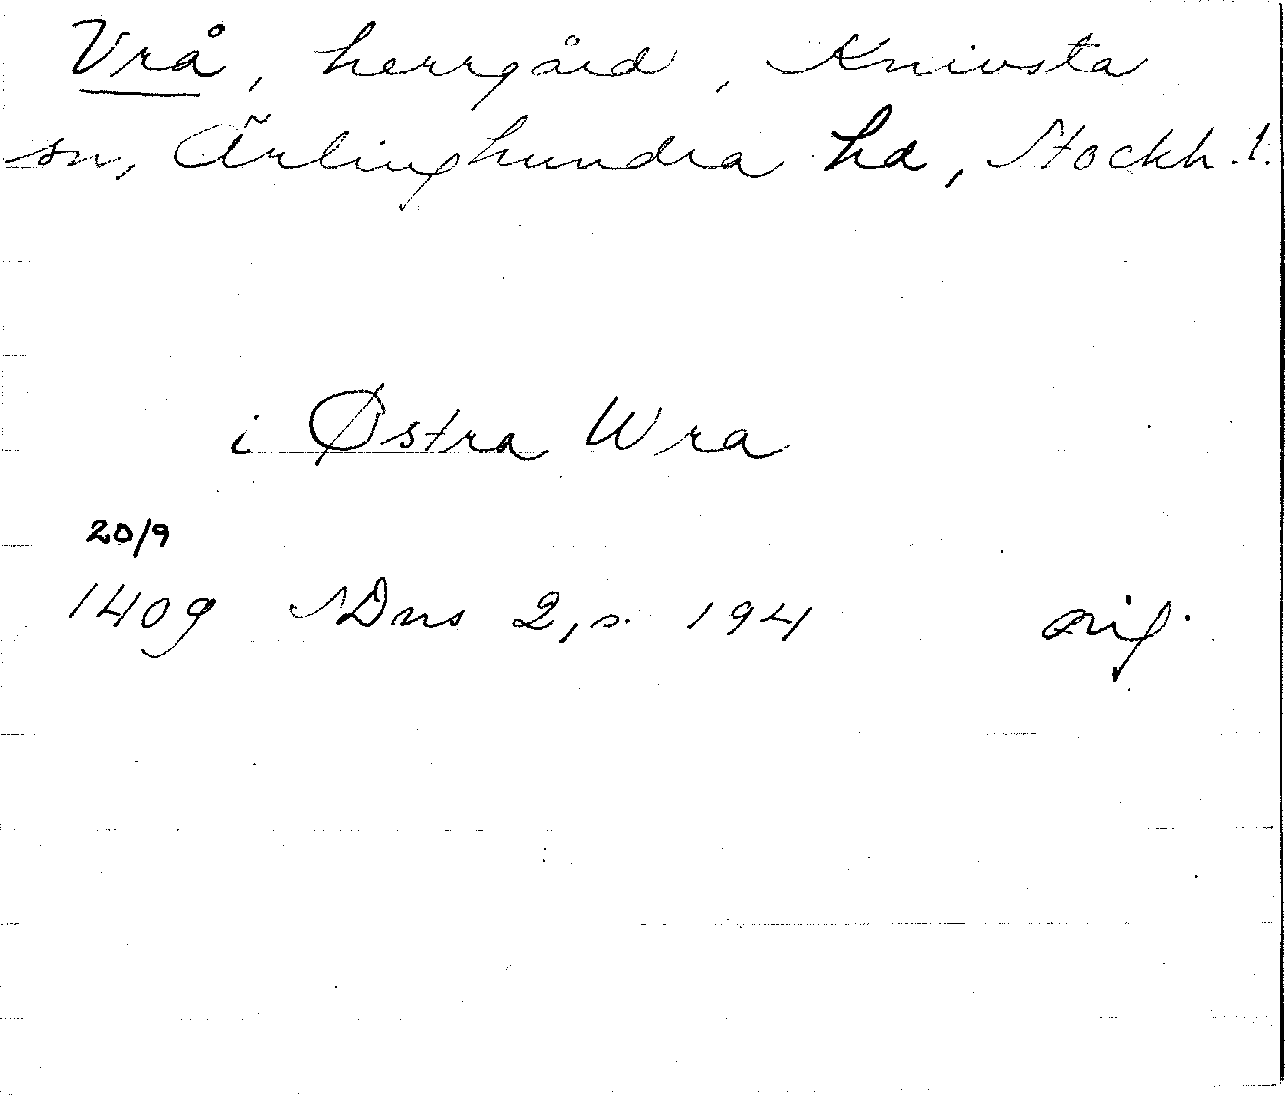 Vrå, herrgård, Knivsta
sn, Ärlinghundra hd, Stockh. l.
i Østra Wra
20/9
1409 SDns 2, s. 194 orig.